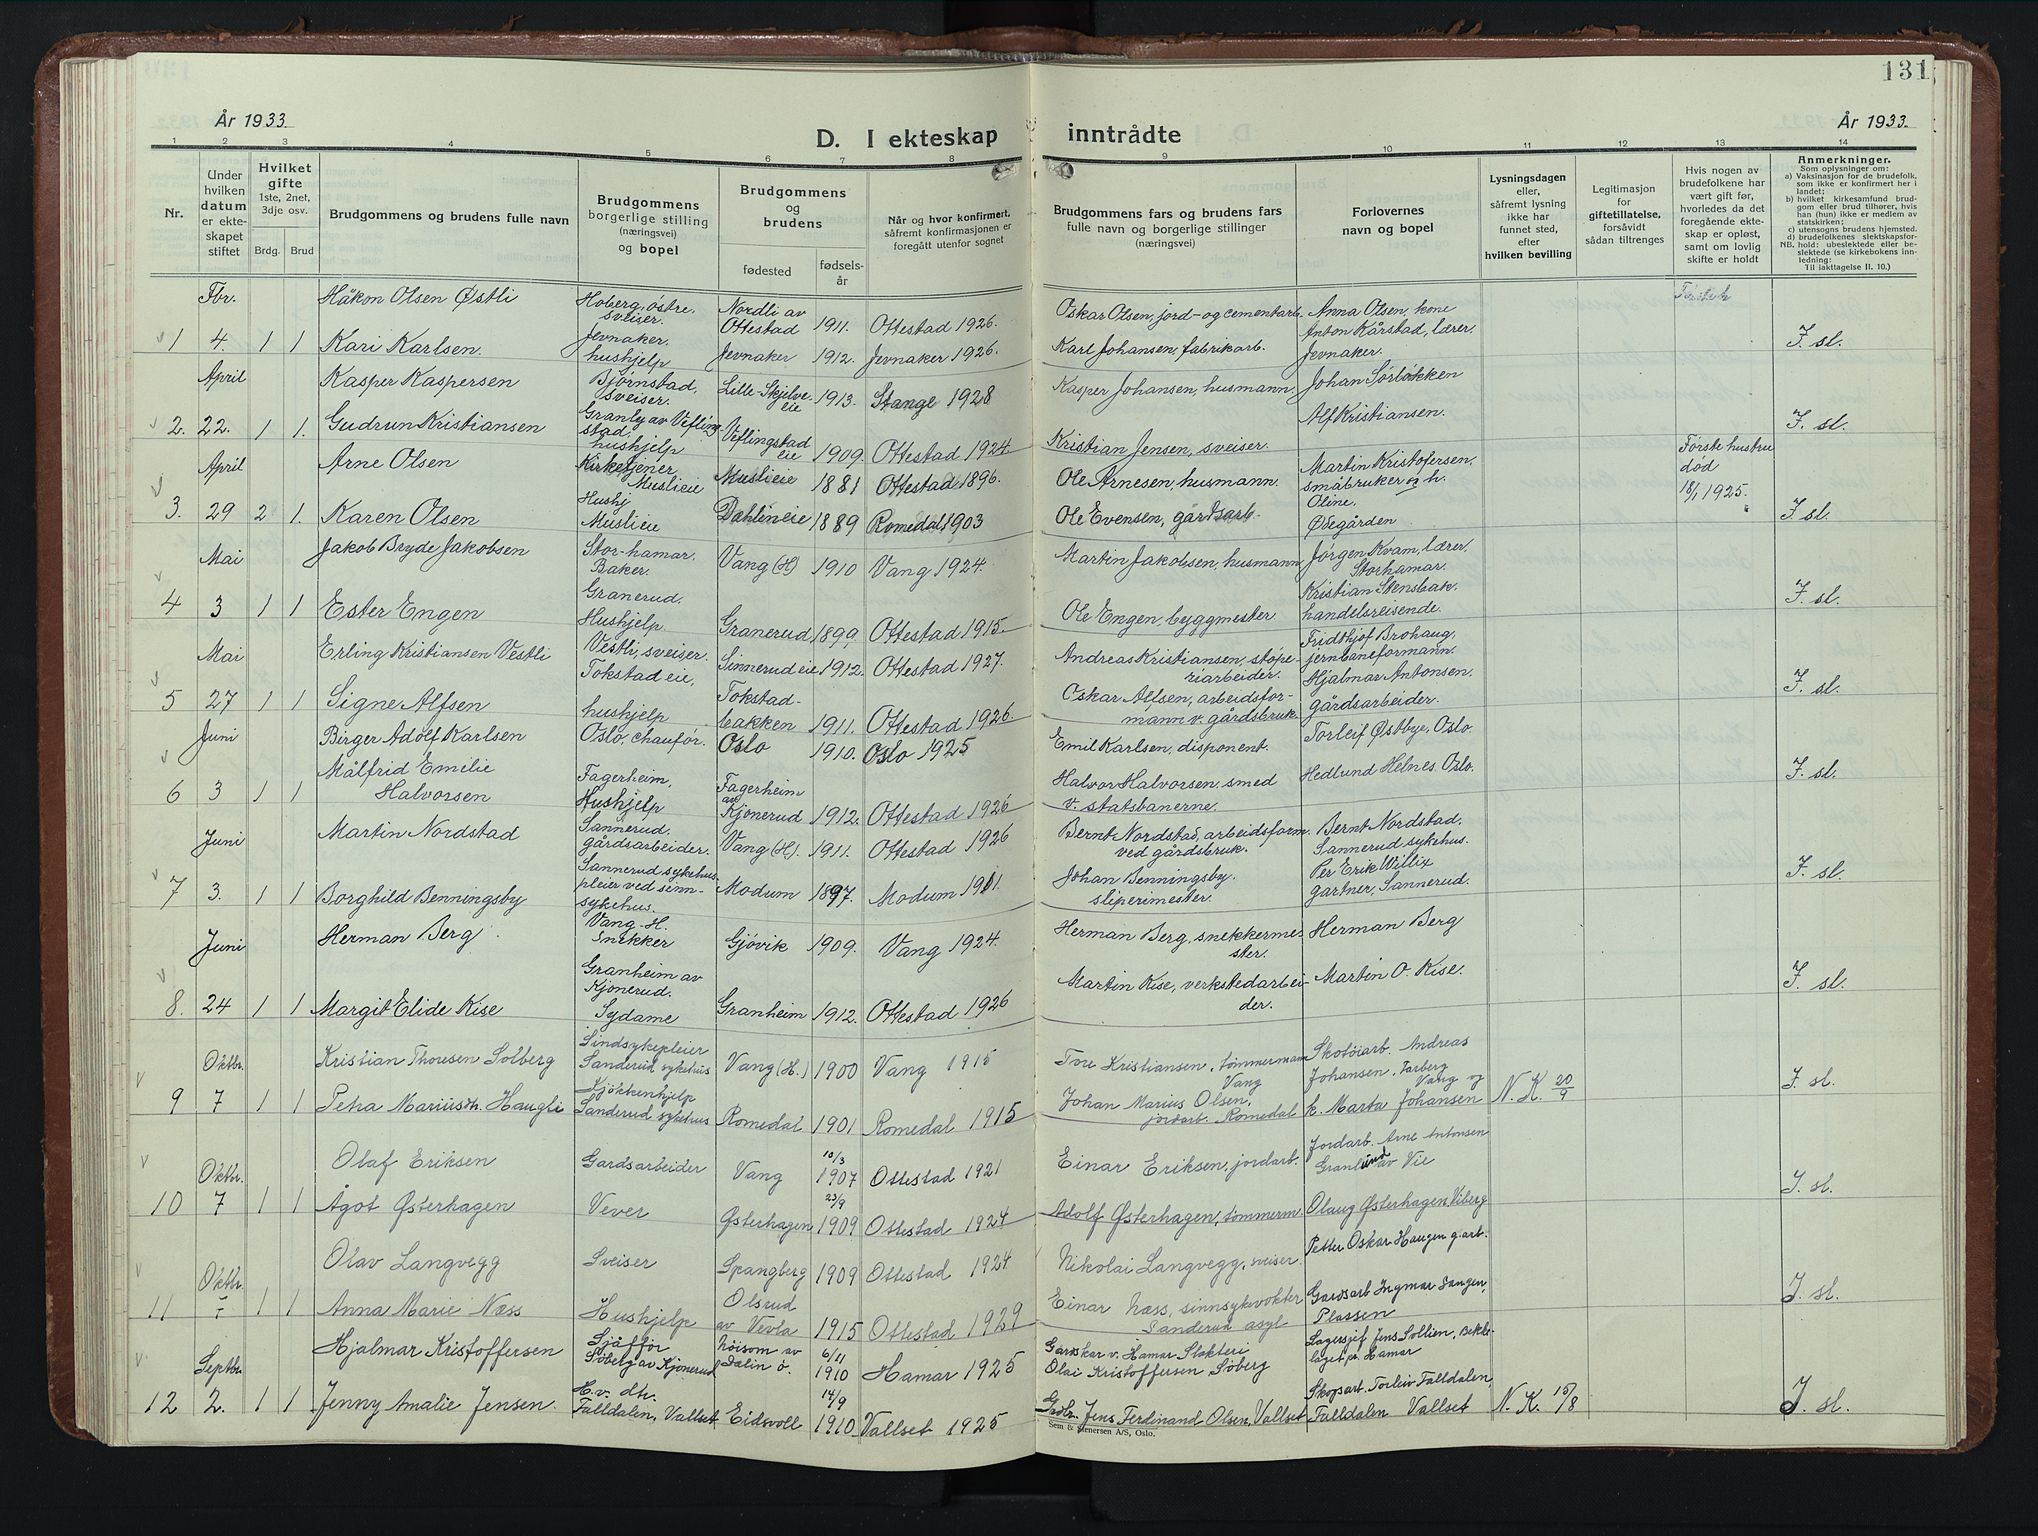 131
År 1933.
D. I ekteskap inntrådte
År 1933.
1 2 3 4 5 6 7 8 9 10 11 12 13 14
Nr.
Under hvilken datum er ekteskapet stiftet
Hvilket gifte 1ste, 2net, 3dje osv.
Brdg. Brud
Brudgommens og brudens fulle navn
Brudgommens borgerlige stilling (næringsvei) og bopel
Brudgommens og brudens
fødested
fødselsår
Når og hvor konfirmert, såfremt konfirmasjonen er foregått utenfor sognet
Brudgommens fars og brudens fars fulle navn og borgerlige stillinger (næringsvei)
Forlovernes navn og bopel
Lysningsdagen eller, såfremt lysning ikke har funnet sted, efter hvilken bevilling
Legitimasjon for giftetillatelse, forsåvidt sådan tiltrenges
Hvis nogen av brudefolkene har vært gift før, hvorledes da det foregående ekteskap er opløst, samt om lovlig skifte er holdt
Anmerkninger.
Som oplysninger om:
a) Vaksinasjon for de brudefolk, som ikke er konfirmert her i landet;
b) hvilket kirkesamfund brudgom eller brud tilhører, hvis han (hun) ikke er medlem av statskirken;
c) utensogns brudens hjemsted.
d) brudefolkenes slektskapsforhold: ubeslektede eller beslektede (se kirkebokens innledning:
NB. Til iakttagelse II. 10.)
Fbr. Håkon Olsen Østli Hoberg, østre, sveiser. Nordli av Ottestad 1911. Ottestad 1926. Oskar Olsen, jord- og cementarb. Anna Olsen, kone
1 4. 1 1 Kari Karlsen. Jevnaker. hushjelp Jevnaker 1912. Jevnaker 1926. Karl Johansen, fabrikarb. Anton Kårstad, lærer, Jevnaker. F. sl.
April Kasper Kaspersen Bjørnstad, sveiser. Lille-Skjelve eie 1913. Stange 1928 Kasper Johansen, husmann Johan Sørløkken
2. 22. 1 1. Gudrun Kristiansen Granly av Veflingstad. hushjelp Veflingstad eie 1909. Ottestad 1924. Kristian Jensen, sveiser. Alf Kristiansen. F. sl.
April Arne Olsen Kirketjener, Muslieie Muslieie 1881 Ottestad 1896. Ole Arnesen, husmann. Martin Kristofersen, småbruker og h. Første hustru død 18/1 1925.
3. 29 2 1. Karen Olsen Hushj Muslieie Dæhlineie 1889 Romedal 1903 Ole Evensen, gårdsarb. Oline, Ødegården F. sl.
Mai Jakob Bryde Jakobsen Stor-hamar. Baker. Vang (H) 1910 Vang 1924. Martin Jakobsen, husmann Jørgen Kvam, lærer, Storhamar.
4 3 1 1 Ester Engen Granerud. Hushjelp Granerud 1899. Ottestad 1915. Ole Engen, byggmester Kristian Stensbak handelsreisende. F. sl.
Mai Erling Kristiansen Vestli Vestli, sveiser. Sinnerud eie 1912. Ottestad 1927. Andreas Kristiansen, støperiarbeider. Fridthjof Brohaug, jernbaneformann.
5 27 1 1 Signe Alfsen Tokstad eie, hushjelp Tokstadbakken 1911. Ottestad 1926. Oskar Alfsen, arbeidsformann v. gårdsbruk. Hjalmar Antonsen, gårdsarbeider. F. sl.
Juni Birger Adolf Karlsen Oslo, chaufør. Oslo 1910. Oslo 1925 Emil Karlsen, disponent. Torleif Østbye, Oslo
6 3 1 1 Målfrid Emelie Halvorsen Fagerheim, Hushjelp Fagerheim av Kjonerud 1912. Ottestad 1926 Halvor Halvorsen, smed v. statsbanerne. Hedlund Helnes. Oslo. F. sl.
Juni Martin Nordstad Sannerud. gårdsarbeider. Vang (H). 1911. Ottestad 1926 Bernt Nordstad, arbeidsform. ved gårdsbruk. Bernt Nordstad, Sannerud sykehus.
7 3. 1 1 Borghild Benningsby Sannerud sykehus, pleier ved sinnsykehus. Modum 1897. Modum 1911. Johan Benningsby. sliperimester. Per Erik Willix gartner, Sannerud. F. sl.
Juni Herman Berg Vang-H. Snekker Gjøvik 1909. Vang 1924. Herman Berg, snekkermester. Herman Berg
8. 24 1 1 Margit Elide Kise Granheim av Kjonerud. Sydame Granheim 1912. Ottestad 1926 Martin Kise, verkstedarbeider. Martin O. Kise. F. sl.
Oktbr. Kristian Thoresen Solberg Sindsykepleier Sanderud sykehus Vang (H.) 1900 Vang 1915 Tore Kristiansen, tømmermann Vang Skotøiarb. Andreas Johansen, Farberg Vang og
9 7 1 1 Petra Mariusdtr. Haugli Kjøkkenhjelp Sanderud sykehus Romedal 1901 Romedal 1915 Johan Marius Olsen, jordarb. Romedal k. Marta Johansen N. K. 20/9 F. sl.
Oktbr. Olaf Eriksen Gardsarbeider Vang 10/3 1907 Ottestad 1921 Einar Eriksen, jordarb. Jordarb. Arne Antonsen Granlund av Vie
10 7 1 1 Ågot Østerhagen Vever Østerhagen 23/9 1909 Ottestad 1924 Adolf Østerhagen, tømmerm. Olaug Østerhagen, Viberg F. sl.
Oktbr. Olav Langvegg Sveiser Spangberg 1909 Ottestad 1924 Nikolai Langvegg, sveiser. Petter Oskar Haugen g.arb.
11 7 1 1 Anna Marie Næss Hushjelp Olsrud av Vevla 1915 Ottestad 1929 Einar Næss, sinnsykevokter Sanderud asyl Gardsarb Ingmar Haugen, Plassen F. sl.
Septbr. Hjalmar Kristoffersen Sjåffør Søberg av Kjonerud Dalin ö. 6/11 1910 Hamar 1925 Gardskar v. Hamar Slakteri Olai Kristoffersen Søberg Lagersjef Jens Sollien, Hamar
12 2. 1 1 Jenny Amalie Jensen H.v. dtr. Falldalen, Vallset Eidsvoll 14/9 1910 Vallset 1925 Jens Ferdinand Olsen, Vallset Skogsarb. Torleiv Falldalen, Falldalen Vallset N. K. 15/8 F. sl.
Sem & Stenersen A/S, Oslo.